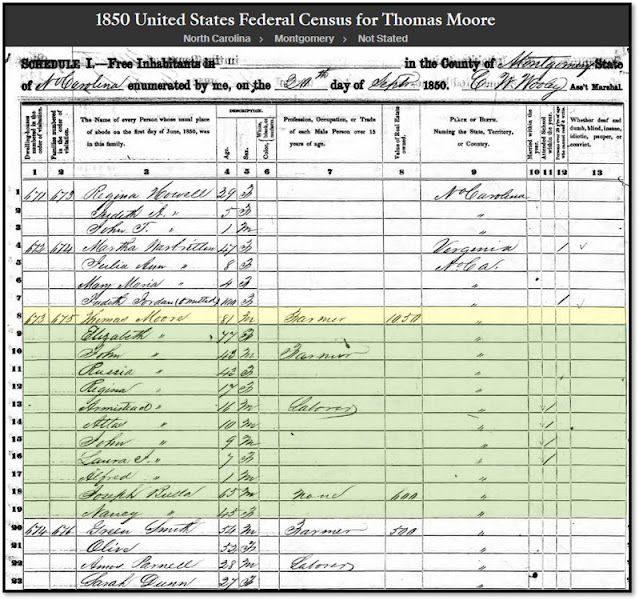 1850 United States Federal Census for Thomas Moore
North Carolina > Montgomery > Not Stated
SCHEDULE I.—Free Inhabitants in in the County of Montgomery State
of No Carolina enumerated by me, on the 20th day of Septr 1850. Ass't Marshal.
DESCRIPTION.
Dwelling-houses numbered in the order of visitation.
Families numbered in the order of visitation.
The Name of every Person whose usual place of abode on the first day of June, 1850, was in this family.
Age.
Sex.
Color.
Profession, Occupation, or Trade of each Male Person over 15 years of age.
Value of Real Estate owned
PLACE OF BIRTH. Naming the State, Territory, or Country.
Married within the year.
Attended School within the year.
Whether deaf and dumb, blind, insane, idiotic, pauper, or convict.
1 2 3 4 5 6 7 8 9 10 11 12 13
1 671 673 Regina Howell 29 F No Carolina
2 Judith A. " 5 F "
3 John T. " 1 M "
4 672 674 Martha 47 F Virginia 1
5 Julia Ann " 8 F No Ca.
6 Mary Maria " 4 F "
7 Judith Jordan F " 1
8 673 675 Thomas Moore 81 M Farmer 1050 "
9 Elizabeth " 77 F "
10 John " 43 M Farmer "
11 Russia " 42 F "
12 Regina " 17 F "
13 Armistead " 16 M Laborer " 1
14 Atlas " 10 M " 1
15 John " 9 M " 1
16 Laura J. " 7 F " 1
17 Alfred " 1 M "
18 Joseph 65 M None 600 "
19 Nancy " 45 F "
20 674 676 Green Smith 54 M Farmer 500 "
21 Olive 52 F "
22 Amos Parnell 28 M Laborer "
23 Sarah Dunn 27 F "